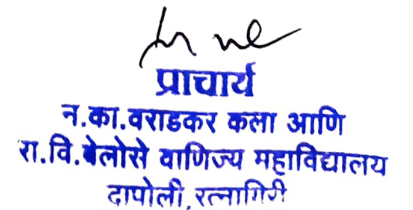 प्राचार्य
न.का.वराडकर कला आणि
रा.वि.बेलोसे वाणिज्य महाविद्यालय
दापोली,रत्नागिरी